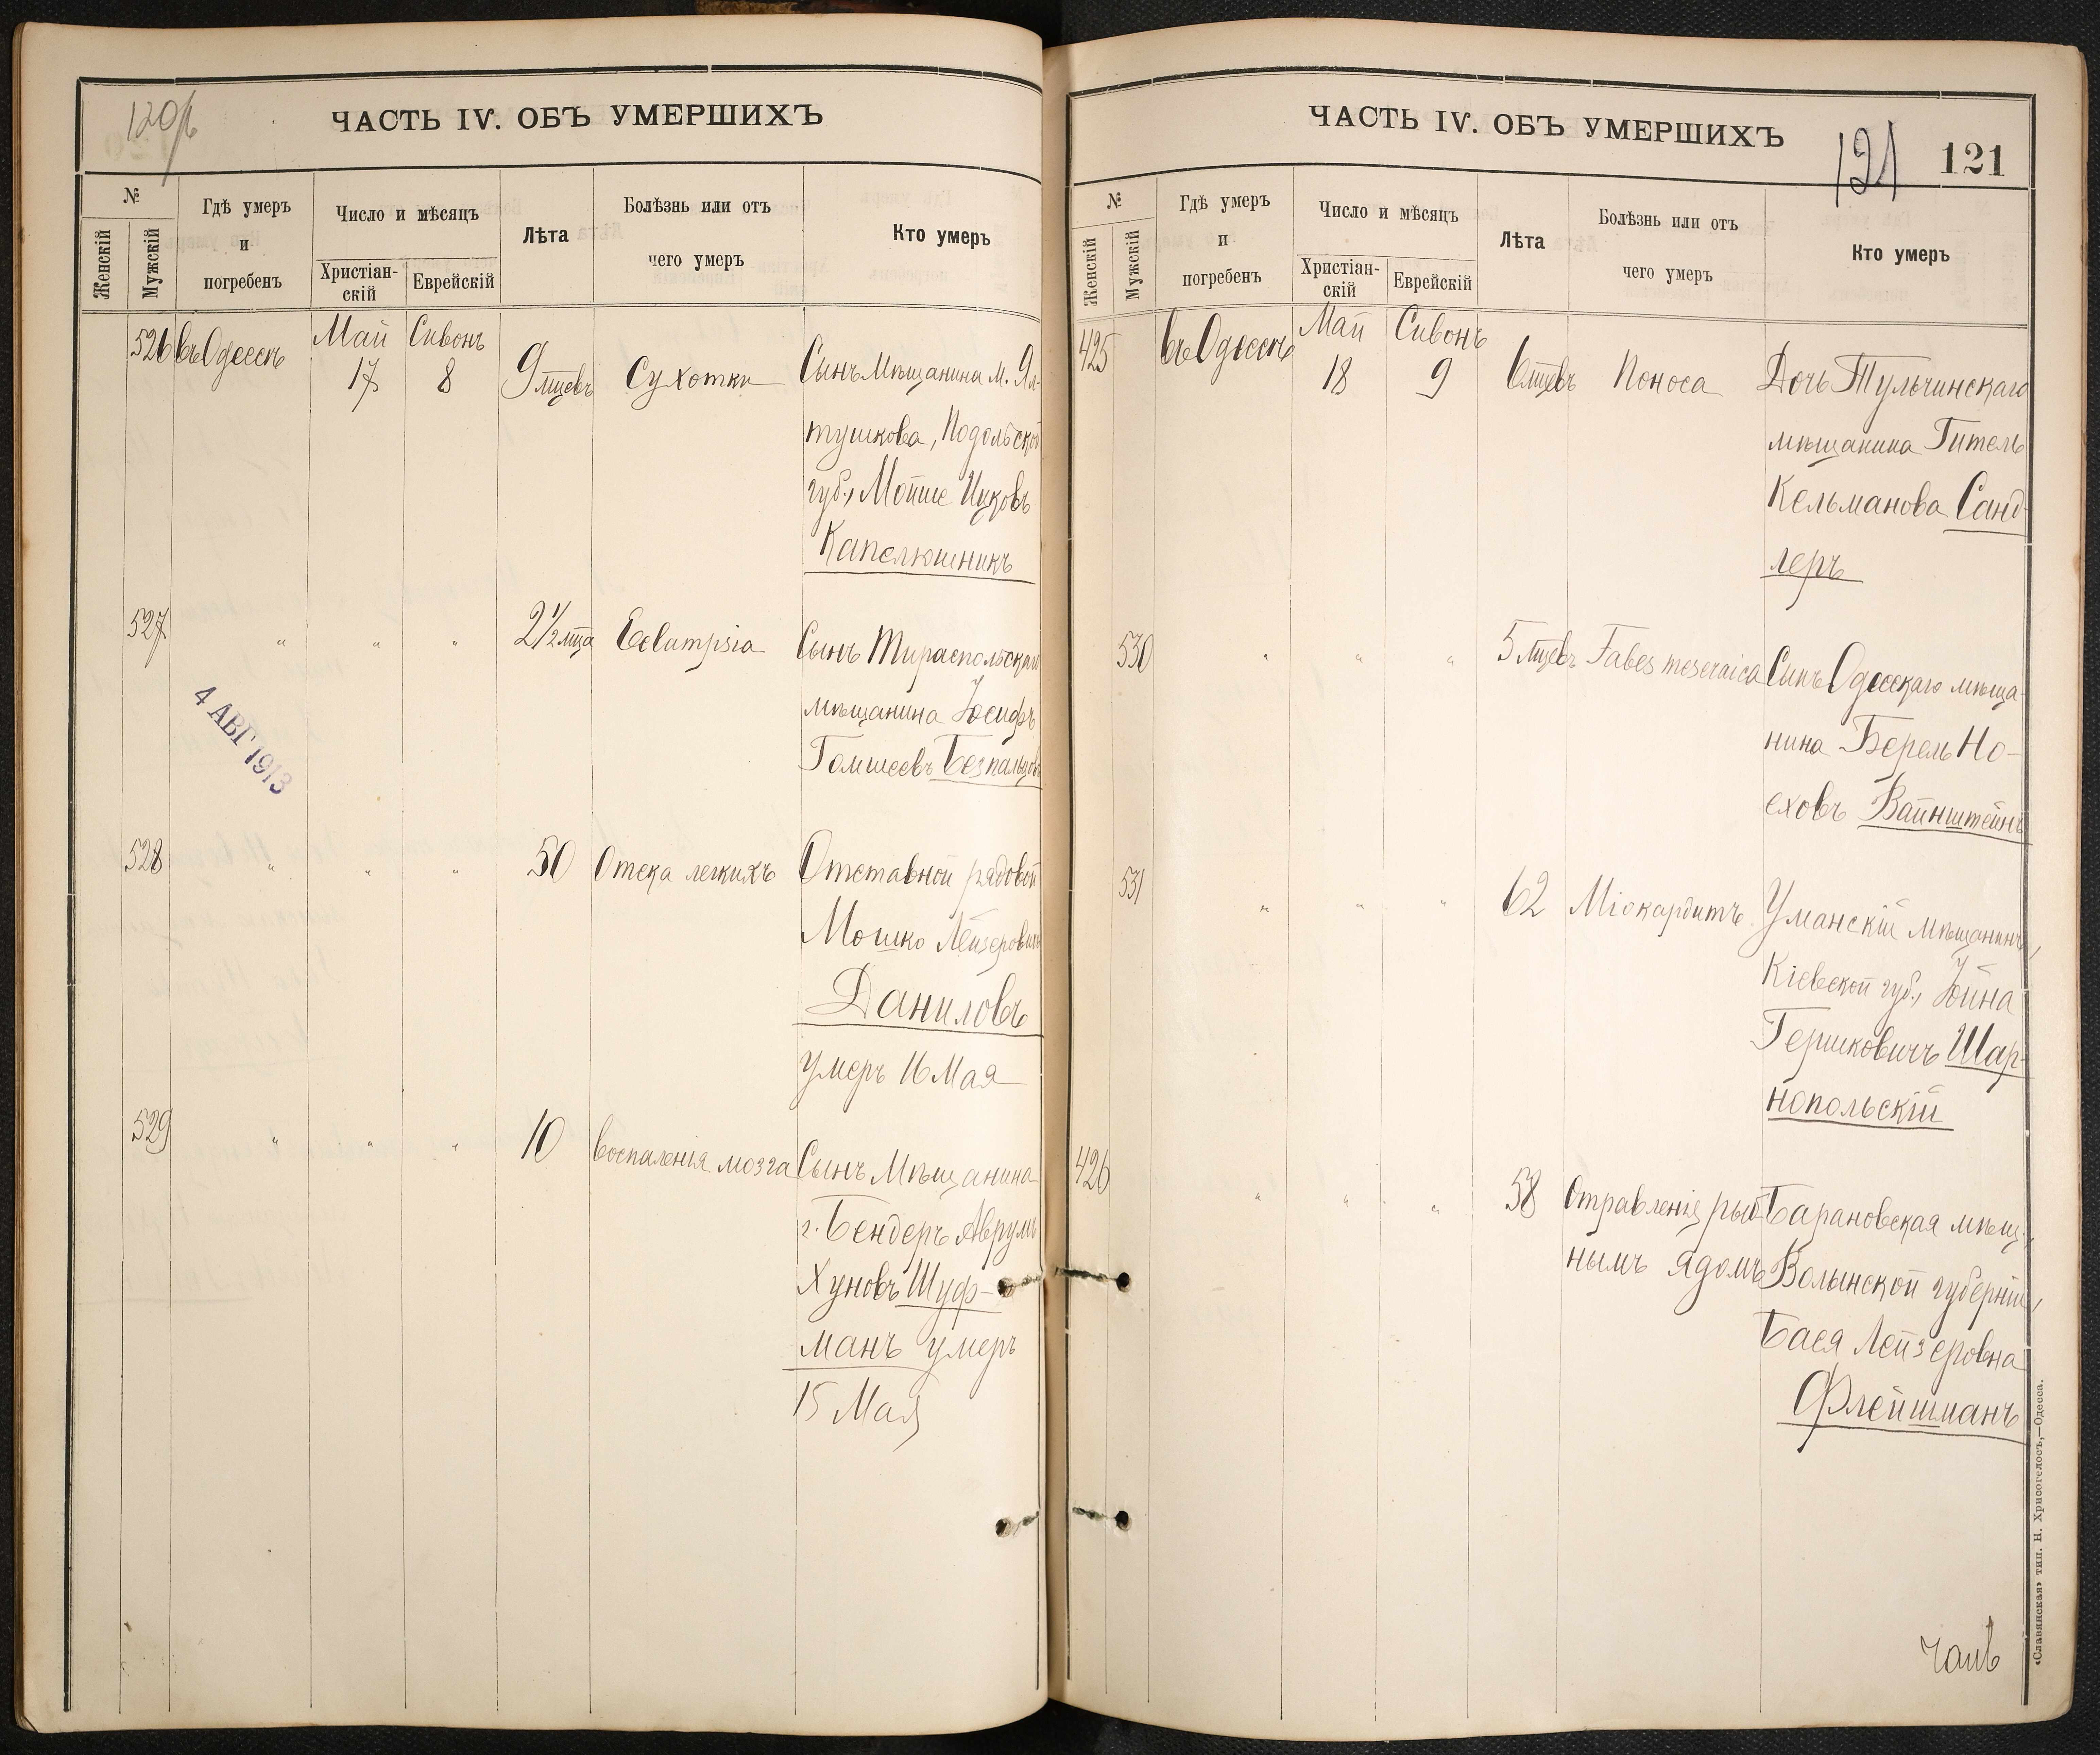 120/b
ЧАСТЬ IV. ОБЪ УМЕРШИХЪ
№
Женскій
Мужскій
Гдѣ умеръ
и
погребенъ
Число и мѣсяцъ
Христіан-
скій
Еврейскій
Лѣта
Болѣзнь или отъ
чего умеръ
Кто умеръ
526 въ Одессѣ Май 17 Сивонъ 8 9 мцевъ Сухотки Сынъ Мѣщанина м. Ял-
тушкова, Подольской
губ., Мойше Ицковъ
Капелюшникъ
527 " " " 2 1/2 мца Eclampsia Сынъ Тираспольскаго
мѣщанина Іосифъ
Гомшеевъ Безпальцовъ
4 АВГ 1913
528 " " " 50 Отека легкихъ Отставной рядовой
Мошко Лейзеровичъ
Даниловъ
умеръ 16 Мая
529 " " " 10 Воспаленія мозга Сынъ Мѣщанина
г. Бендеръ Аврумъ
Хуновъ Шуф-
манъ умеръ
15 Мая
ЧАСТЬ IV. ОБЪ УМЕРШИХЪ
121 121
№
Женскій
Мужскій
Гдѣ умеръ
и
погребенъ
Число и мѣсяцъ
Христіан-
скій
Еврейскій
Лѣта
Болѣзнь или отъ
чего умеръ
Кто умеръ
425 въ Одессѣ Май 18 Сивонъ 9 6 мцевъ Поноса Дочь Тульчинскаго
мѣщанина Гитель
Кельманова Санд-
леръ
530 " " " 5 мцевъ Tabes meseraica Сынъ Одесскаго мѣща-
нина Берель Но-
еховъ Вайнштейнъ
531 " " " 62 Міокардитъ Уманскій мѣщанинъ,
Кіевской губ., Іойна
Гершковичъ Шар-
нопольскій
426 " " " 58 Отравленія рыб- Барановская мѣщ.,
нымъ ядомъ Волынской губерніи,
Бася Лейзеровна
Флейшманъ
«Славянская» тип. Н. Хрисогелосъ,—Одесса.